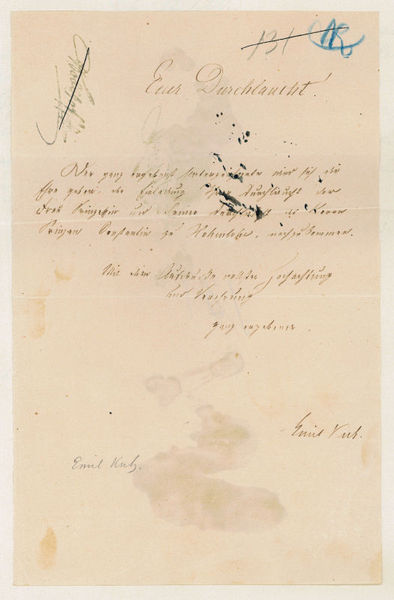 131
Euer Durchlaucht!
Der ganz ergebenst Unterzeichnete wird sich die
Ehre geben, der Einladung Ihrer Durchlaucht der
Frau Prinzessin und Seiner Durchlaucht des Herrn
Prinzen Constantin zu Hohenlohe, nachzukommen.
Mit dem Ausdrucke vollster Hochachtung
und Verehrung
ganz ergebener
Emil Kuh.
Emil Kuh.